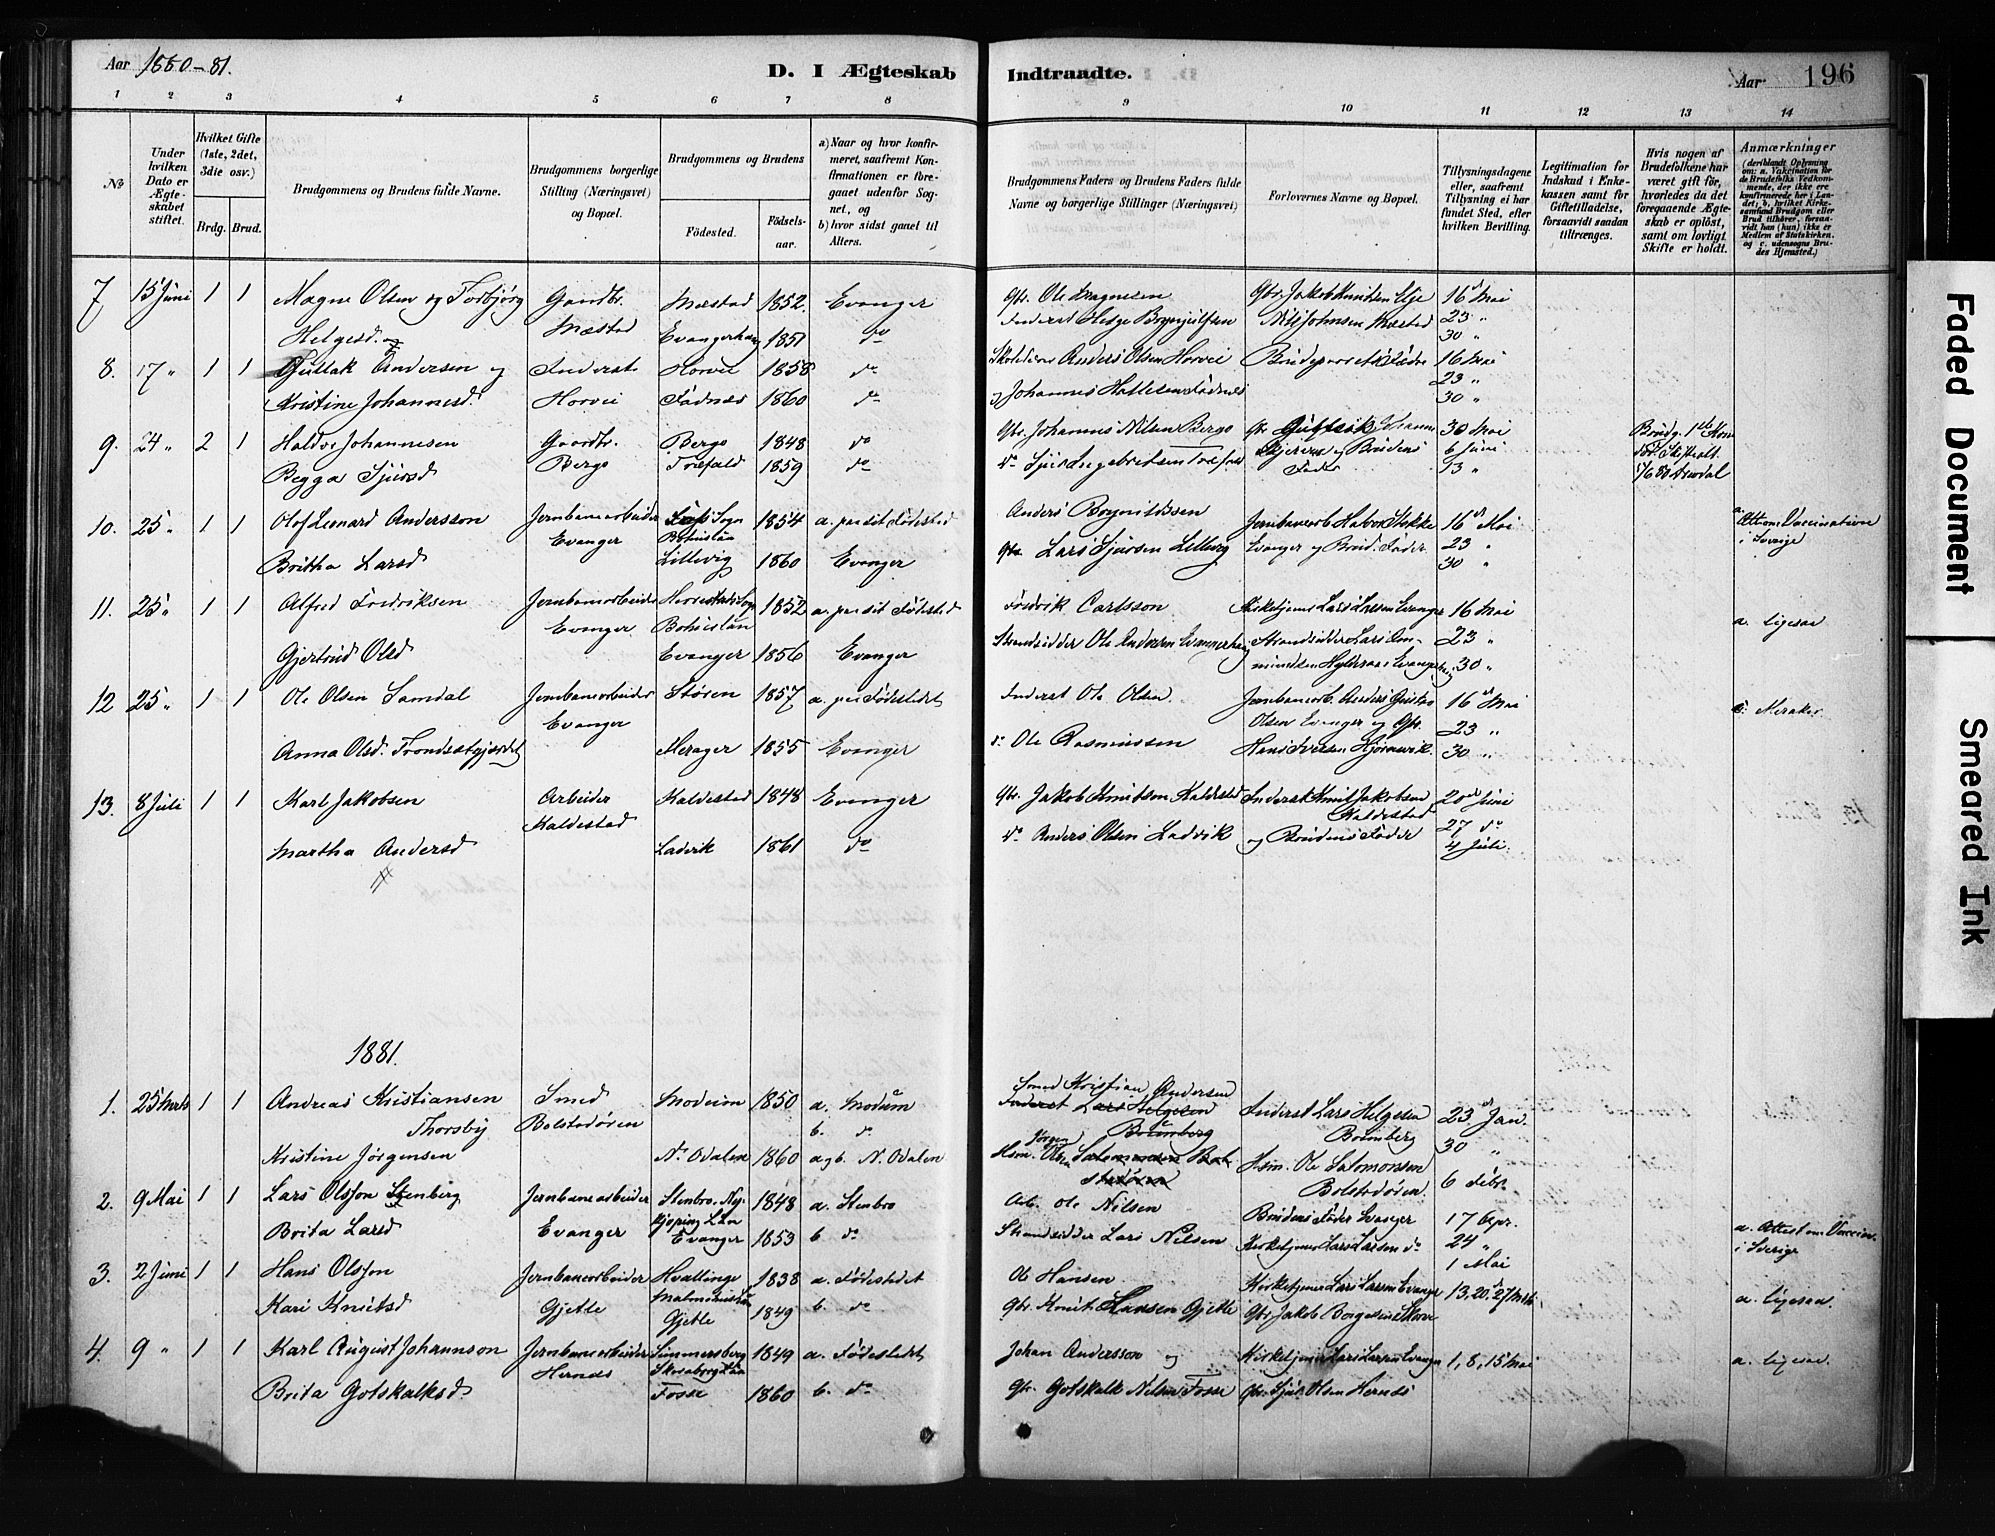 Aar 1880-81.
D. I Ægteskab Indtraadte.
Aar 196
1 2 3 4 5 6 7 8 9 10 11 12 13 14
No
Under hvilken Dato er Ægteskabet stiftet.
Hvilket Gifte (1ste, 2det, 3die osv.)
Brdg. Brud.
Brudgommens og Brudens fulde Navne.
Brudgommens borgerlige Stilling (Næringsvei) og Bopæl.
Brudgommens og Brudens
Fødested. Fødselsaar.
a) Naar og hvor konfirmeret, saafremt Konfirmationen er foregaaet udenfor Sognet, og
b) hvor sidst gaaet til Alters.
Brudgommens Faders og Brudens Faders fulde Navne og borgerlige Stillinger (Næringsvei)
Forlovernes Navne og Bopæl.
Tillysningsdagene eller, saafremt Tillysning ei har fundet Sted, efter hvilken Bevilling.
Legitimation for Indskud i Enkekassen samt for Giftetilladelse, forsaavidt saadan tiltrænges.
Hvis nogen af Brudefolkene har været gift før, hvorledes da det foregaaende Ægteskab er opløst, samt om lovligt Skifte er holdt.
Anmærkninger
(deriblandt Oplysning om: a. Vaccination for de Brudefolks Vedkommende, der ikke ere konfirmerede her i Landet; b. hvilket Kirkesamfund Brudgom eller Brud tilhører, forsaavidt han (hun) ikke er Medlem af Statskirken, og c. udensogns Brudes Hjemsted.)
7 15 Juni 1 1 Magne Olsen og Torbjørg Gaardbr. Mæstad 1852. Evanger Gbr. Ole Magnesen Gbr. Jakob Knutsen 16 Mai
Helgesd. Mæstad Evanger 1851 do Inderst Helge Brynjulfsen Nils Johnsen Mæstad 23 "
30 "
8. 17 " 1 1 Gullak Andersen og Inderst Horvei 1858 do Anders Olsen Horvei Brudeparrets Fædre 16 Mai
23 "
Kristine Johannesd. Horvei Fadnes 1860 do og Johannes Fadnes 30 "
9. 24 " 2 1 Haldor Johannesen Gaardbr. Bergo 1848 do Gbr. Johannes Nilsen Bergo 30 Mai Brudg. 1ste Kone
Begga Sjursd Bergo Torefald 1859 do do Sjur Ingebritsen og Brudens Fader 6 Juni
13 "
10. 25 " 1 1 Olof Leonard Andersson Jernbanearbeider Sogn 1854 a. paa sit Fødested Anders Jernbanearb. Halvor Stokke 16 Mai a. Attest om Vaccination
Evanger Bohuslän i Sverige
Britha Larsd Lillevig 1860 Evanger Gbr. Lars Sjursen Evanger og Brud. Fader 23 "
30 "
11. 25 " 1 1 Alfred Fredriksen Jernbanearbeider Sogn 1852 a. paa sit Fødested Fredrik Carlsson Kirketjener Lars Larsen Evanger 16 Mai a. ligesaa
Evanger Bohuslän
Gjertrud Olsd Evanger 1856 Evanger Strandsidder Ole Andersen Strandsidder Lars 23 "
30 "
12 25 " 1 1 Ole Olsen Samdal Jernbanearbeider Støren 1857 a. paa Fødestedet Inderst Ole Olsen Jernbanearb. Anders 16 Mai c. Meraker
Evanger Olsen Evanger og Gbr. 23 "
Anna Olsd. Merager 1855 Evanger do Ole Rasmussen Hans Iversen 30 "
13. 8 Juli 1 1 Karl Jakobsen Arbeider Kaldestad 1848 Evanger Gbr. Jakob Knutson Kaldestad Inderst Knut Jakobsen 20 Juni
Kaldestad Kaldestad 27 do
Martha Andersd Ladvik 1861 do do Anders Olsen Ladvik og Brudens Fader 4 Juli
1881.
1. 25 Marts 1 1 Andreas Kristiansen Smed Modum 1850 a. Modum Smed Kristian Andersen
Thorsby Bolstadøren b. do Inderst Lars Helgesen Inderst Lars Helgesen 23 Jan.
Bømberg Bømberg 30 "
Kristine Jørgensen N. Odalen 1860 a og b. N. Odalen Hsm. Jørgen Olsen Salomonsen Hsm. Ole Salomonsen
Bolstadøren. 6 Febr.
2. 9 Mai 1 1 Lars Olsson Stenberg Jernbanearbeider Stenbro. 1848 a. Stenbro Arb. Ole Nilsen Brudens Fader Evanger 17 Apr. a. Attest om Vaccin.
Brita Larsd Evanger Evanger 1853 b do Strandsidder Lars Nilsen Kirketjener Lars Larsen do 24 " i Sverige
1 Mai
3. 2 Juni 1 1 Hans Olsson Jernbanearbeider Hvallinge 1838 a. Fødestedet Ole Hansen Kirketjener Lars Larsen Evanger 13, 20, 27 Marts a. ligesaa.
Kari Knutsd Gjelle Gjelle 1849 b. do Gbr. Knut Hansen Gjelle Gbr. Jakob
4. 9 " 1 1 Karl August Johannson Jernbanearbeider 1849 a. Fødestedet Johan Andersson og Kirketjener Lars Larsen Evanger 1, 8, 15 Mai a. ligesaa.
Brita Gotskalksd. Hernes Fosse 1860 b. do Gbr. Gotskalk Nilsen Fosse Gbr. Sjur Olsen Hernes
Faded Document
Smeared Ink